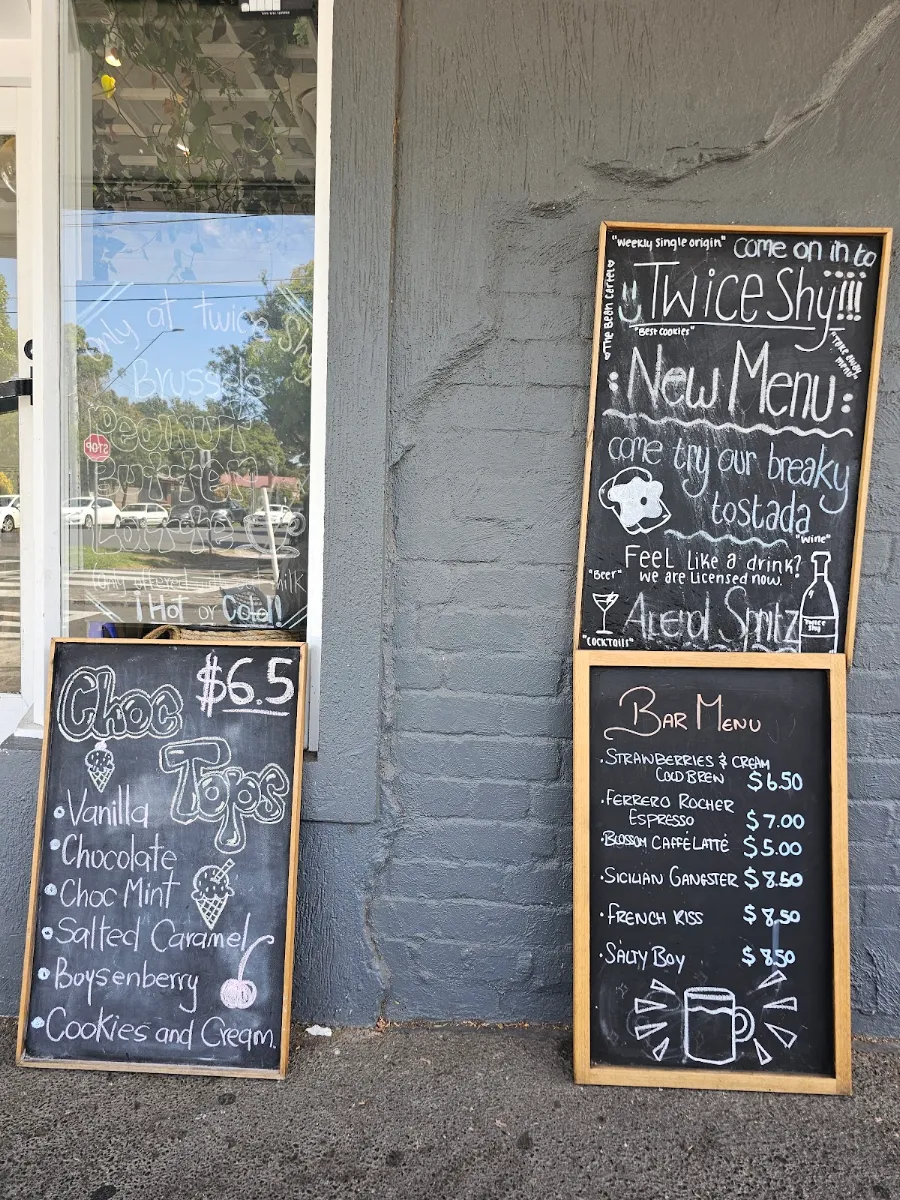 only at twice Shy
Brussels
Peanut
Butter
Latte
Only offered with oat milk
! Hot or Cold!!
STOP
Choc
$6.5
Tops
• Vanilla
• Chocolate
• Choc Mint
• Salted Caramel
• Boysenberry
• Cookies and Cream.
"Weekly Single origin" come on in to
"The Bean Cartel"
Twice Shy!!!!
"BEST COOKIES"
"TAKE AWAY MENU"
:New Menu:
come try our breaky
tostada
"Wine"
Feel Like a drink?
"Beer" we are Licensed now.
Aperol Spritz
Twice Shy
"COCKTAILS"
BAR MENU
• STRAWBERRIES & CREAM
COLD BREW $6.50
• FERRERO ROCHER
ESPRESSO $7.00
• BLOSSOM CAFFÉ LATTÉ $5.00
• SICILIAN GANGSTER $8.50
• FRENCH KISS $8.50
• SALTY BOY $8.50